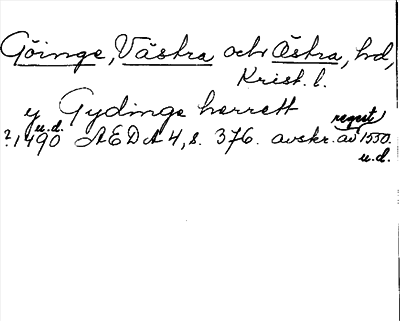 Göinge, Västra och Östra, hd,
Krist. l.
y Gydinge herrett
u.d. regest
? 1490 AEDA 4, s. 376. avskr. av 1550.
u.d.